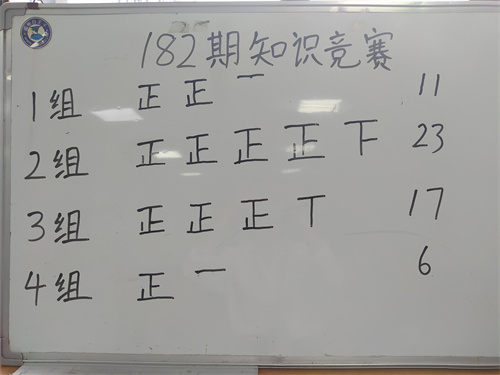 182期知识竞赛
1组 正 正 一 11
2组 正 正 正 正 下 23
3组 正 正 正 丅 17
4组 正 一 6